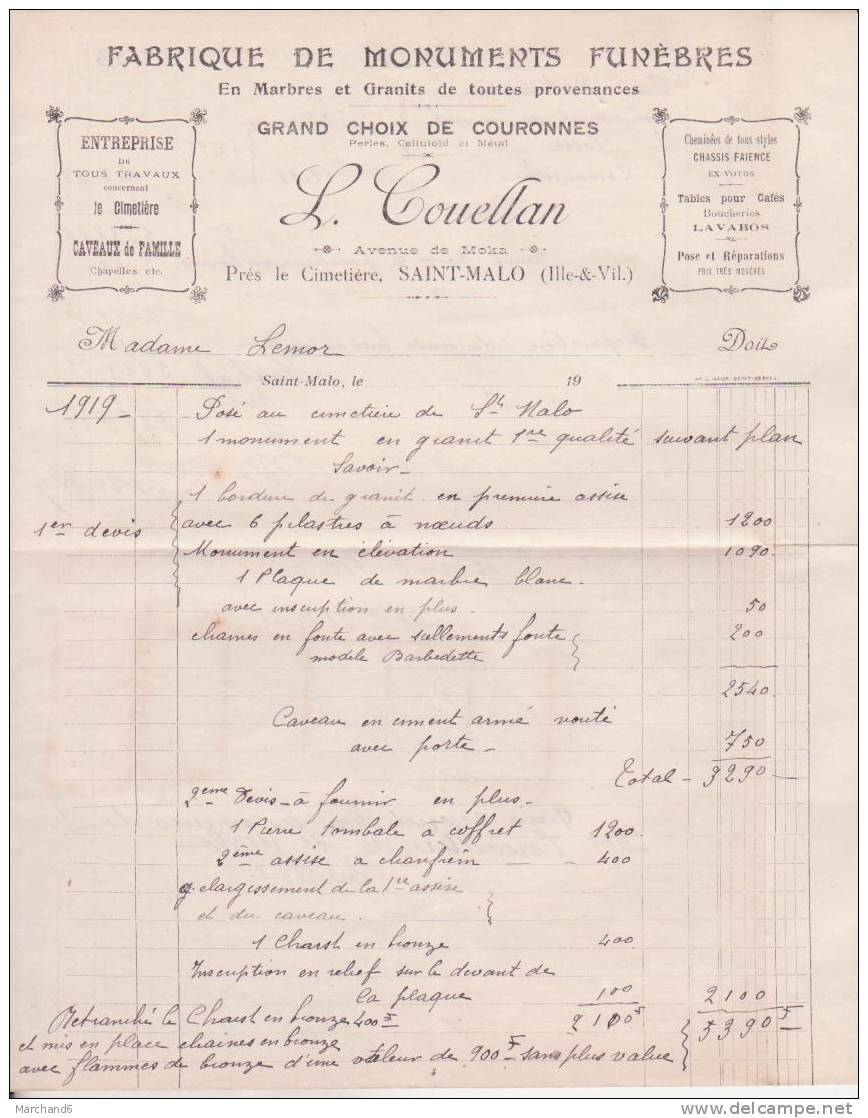 FABRIQUE DE MONUMENTS FUNÈBRES
En Marbres et Granits de toutes provenances
GRAND CHOIX DE COURONNES
Perles, Celluloïd et Métal
ENTREPRISE
DE
TOUS TRAVAUX
concernant
le Cimetière
CAVEAUX de FAMILLE
Chapelles etc.
L. Couellan
Avenue de Moka
Prés le Cimetière, SAINT-MALO (Ille-&-Vil.)
Cheminées de tous styles
CHASSIS FAIENCE
EX-VOTOS
Tables pour Cafés
Boucheries
LAVABOS
Pose et Réparations
PRIX TRÈS MODÉRÉS
Madame Lemor Doit
Saint-Malo, le 19
1919 - Posé au cimetière de St Malo
1 monument en granit 1re qualité suivant plan
Savoir -
1 bordure de granit en premiere assise
1er devis avec 6 pilastres à nœuds 1200
Monument en élévation 1090
1 Plaque de marbre blanc
avec inscription en plus. 50
chaines en fonte avec scellements fonte 200
modele Barbedette
2540
Caveau en ciment armé vouté
avec porte - 750
Total - 3290
2eme Devis - à fournir en plus -
1 Pierre tombale à coffret 1200
2ème assise a chanfrein 400
elargissement de la 1re assise
et du caveau.
1 Christ en bronze 400
Inscription en relief sur le devant de
la plaque 100 2100
Retranché le Christ en bronze 400 F 2100 F 5390 F
et mis en place chaines en bronze
avec flammes de bronze d'une valeur de 900 F sans plus value
Marchand6
www.delcampe.net